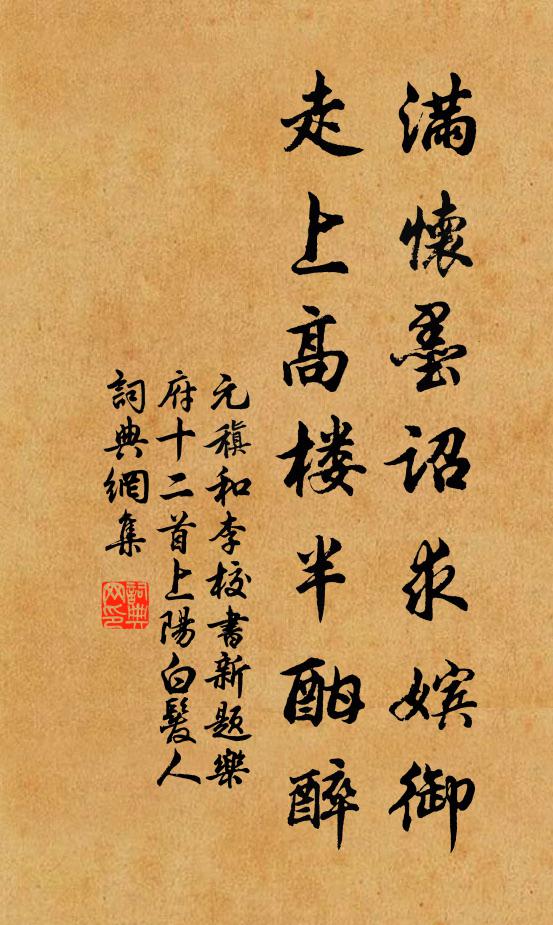 滿懷墨詔求嬪御
走上高楼半酣醉
元稹和李校書新題樂
府十二首上陽白髮人
詞典網集
詞典网印